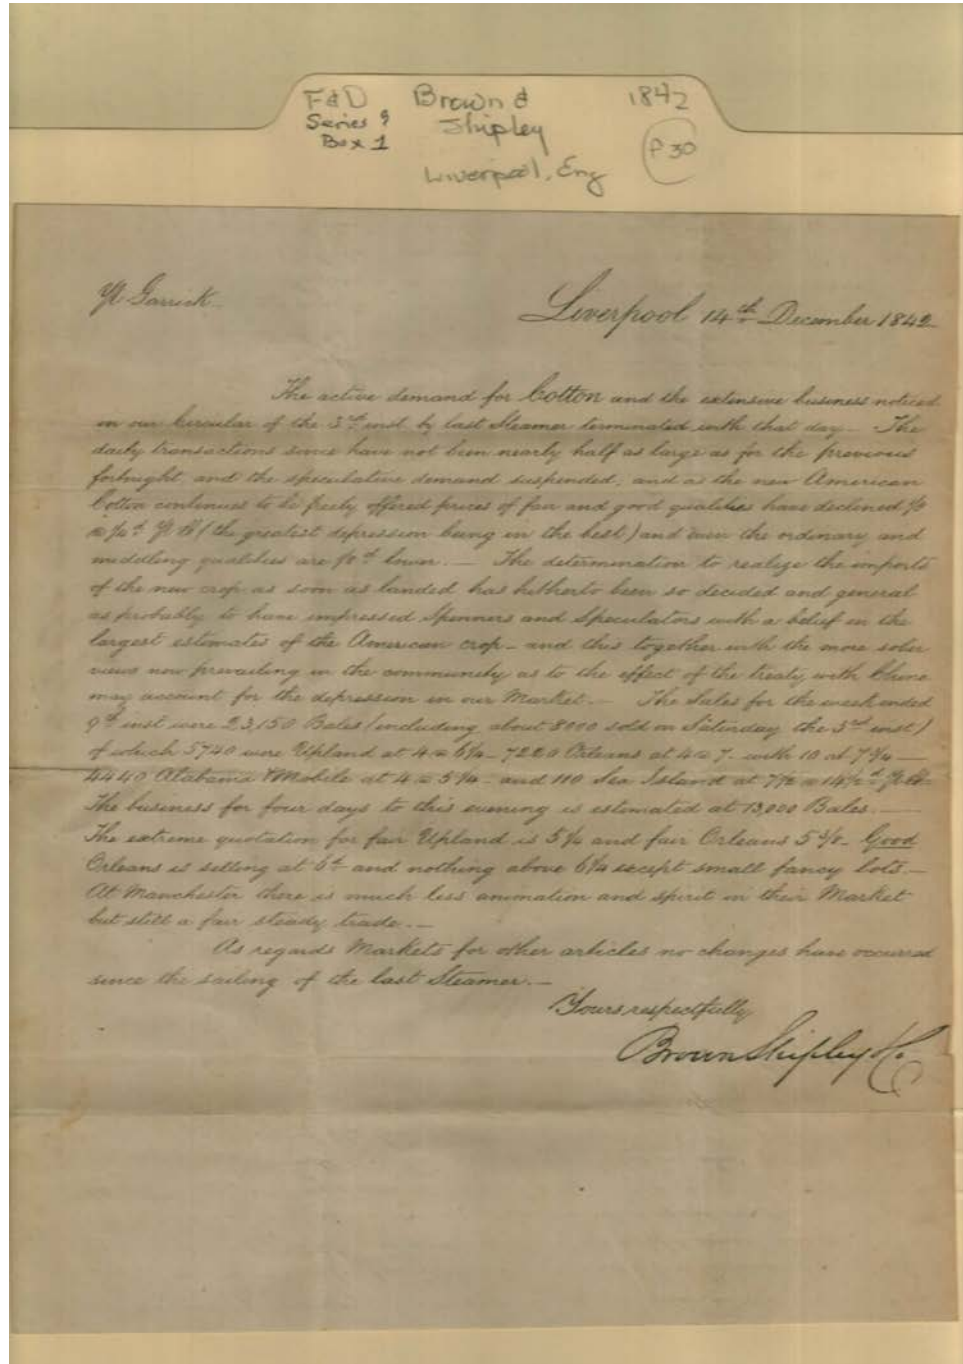 F&D Brown & 1842
Series 9 Shipley
Box 1 P 30
Liverpool, Eng
Pr Garrick
Liverpool 14th December 1842
The active demand for Cotton and the extensive business noticed
in our Circular of the 3rd inst. by last Steamer terminated with that day — The
daily transactions since have not been nearly half as large as for the previous
fortnight and the speculative demand suspended; and as the new American
Cotton continues to be freely offered prices of fair and good qualities have declined 1/8
(the greatest depression being in the best) and even the ordinary and
middling qualities are lower. — The determination to realize the imports
of the new crop as soon as landed has hitherto been so decided and general
as probably to have impressed Spinners and Speculators with a belief in the
largest estimates of the American crop — and this together with the more sober
views now prevailing in the community as to the effect of the treaty with China
may account for the depression in our Market. — The Sales for the week ended
9th inst were 23,150 Bales (including about 8000 sold on Saturday the 3rd inst)
of which 5740 were Upland at 4 a 6 1/4 — 7220 Orleans at 4 a 7 - with 10 at 7 3/4 —
4440 Alabama & Mobile at 4 a 5 3/4 — and 110 Sea Island at 7 1/2 a 14 1/2d Pr lb —
The business for four days to this evening is estimated at 13,000 Bales. —
The extreme quotation for fair Upland is 5 1/4 and fair Orleans 5 3/8 — Good
Orleans is selling at 6d and nothing above 6 1/4 except small fancy lots. —
At Manchester there is much less animation and spirit in their Market
but still a fair steady trade. —
As regards Markets for other articles no changes have occurred
since the sailing of the last Steamer. —
Yours respectfully
Brown Shipley & Co